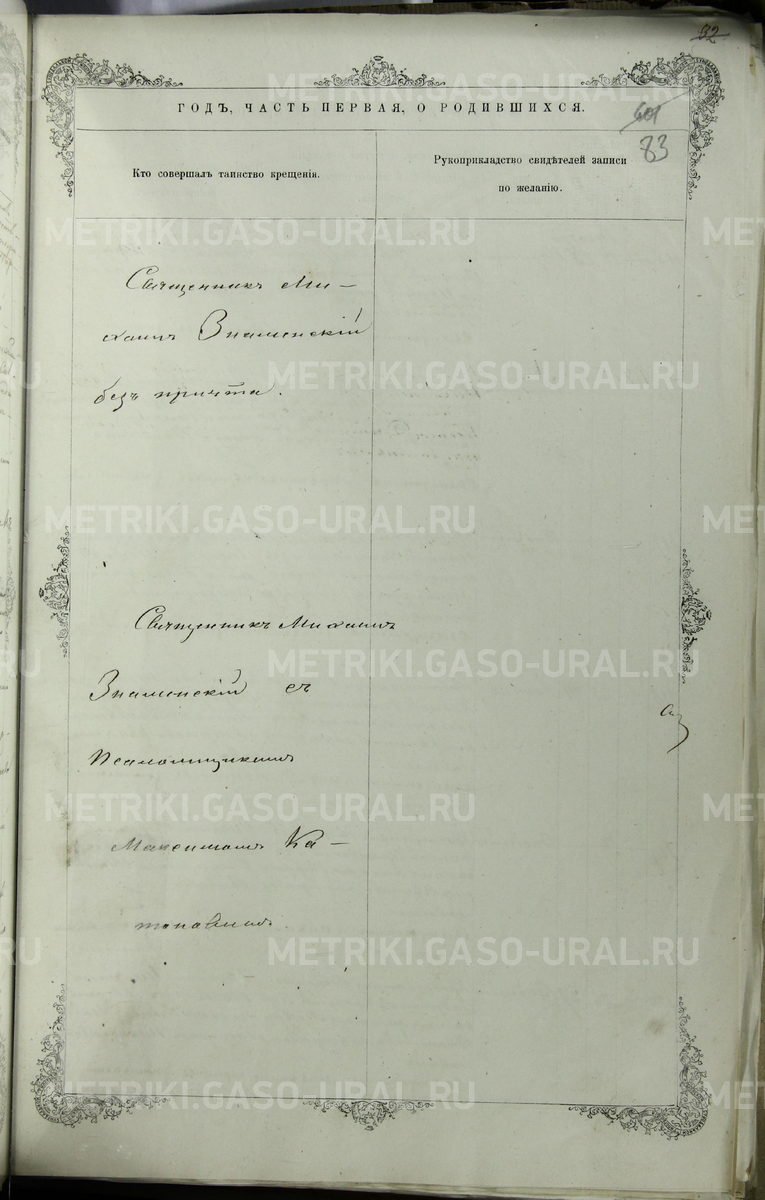 82
ГОДЪ, ЧАСТЬ ПЕРВАЯ, О РОДИВШИХСЯ.
83
Кто совершалъ таинство крещенія.
Рукоприкладство свидѣтелей записи
по желанію.
Священникъ Ми-
хаилъ Знаменскій
безъ причта.
Священникъ Михаилъ
Знаменскій съ
Псаломщикомъ
Максимомъ Ка-
METRIKI.GASO-URAL.RU